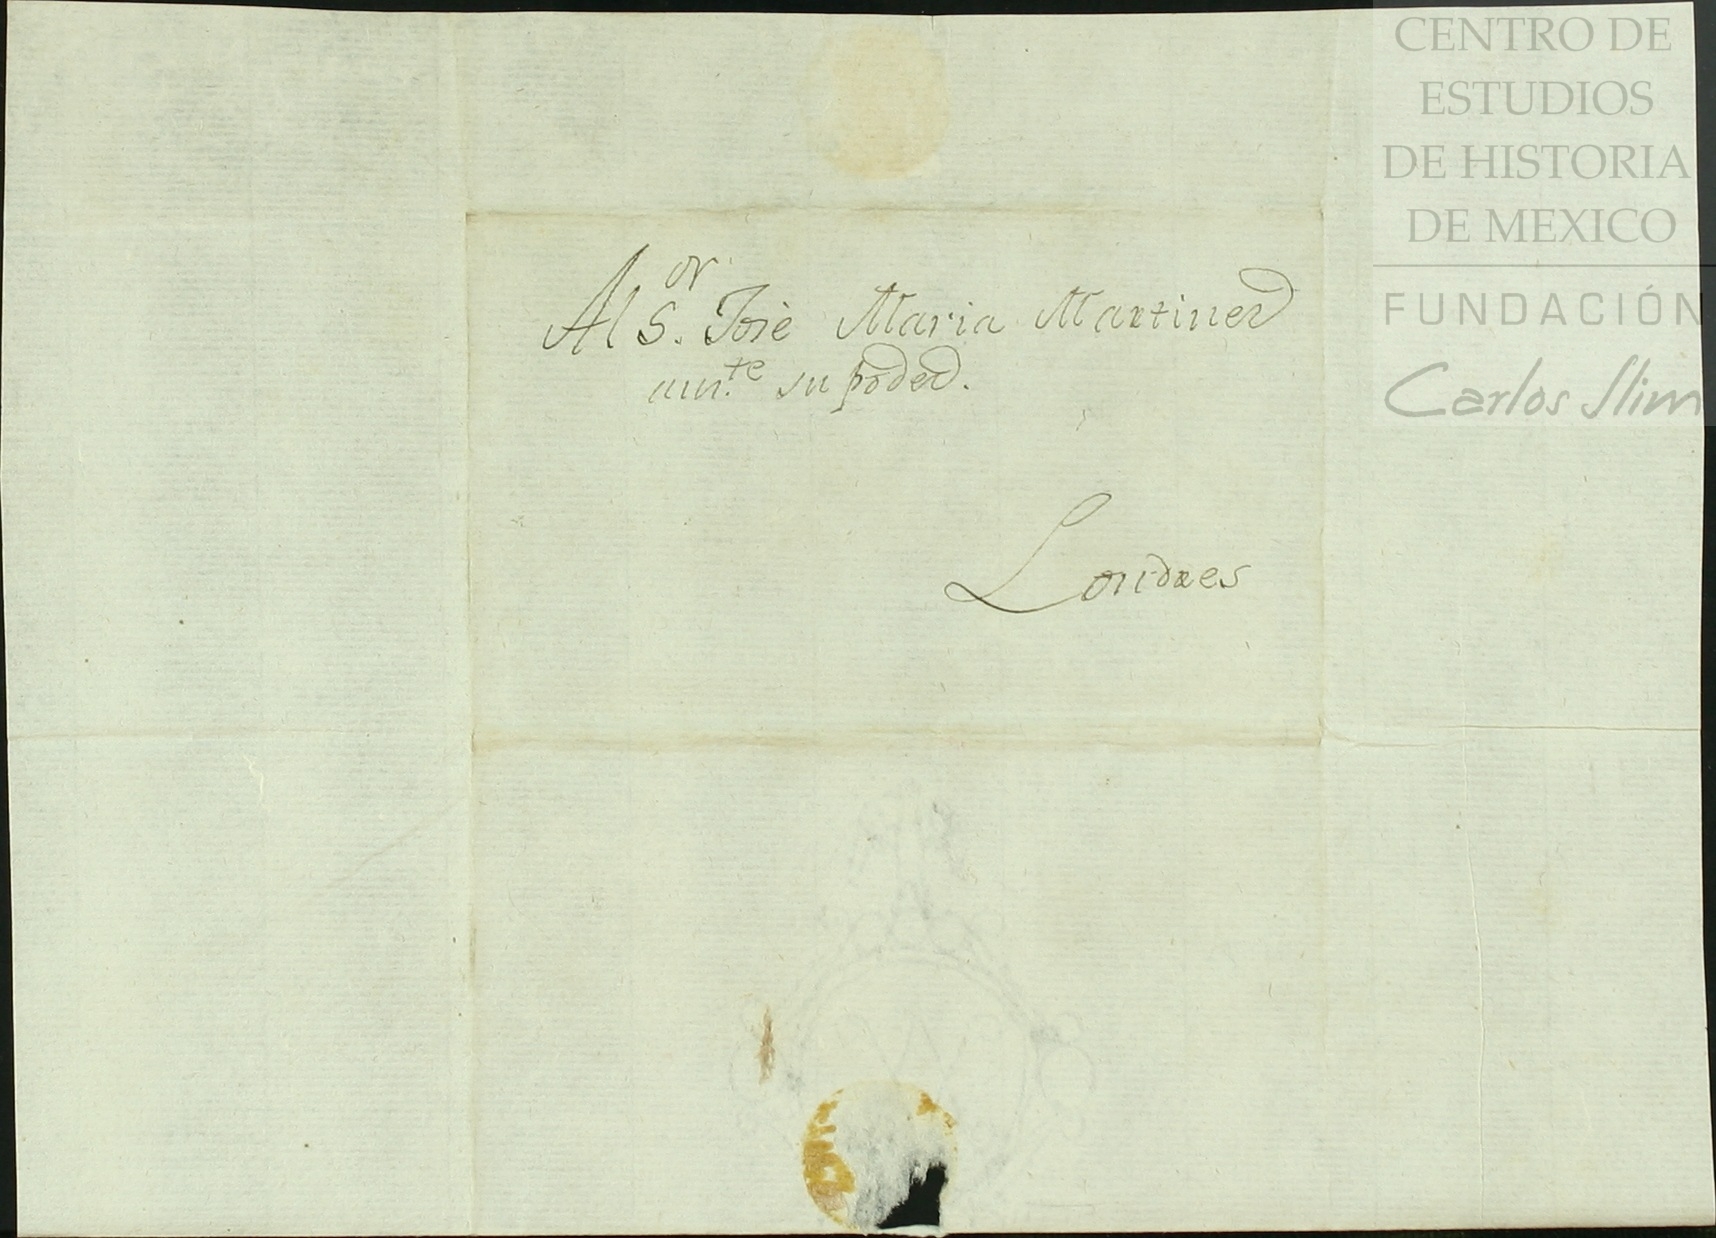 Al S.or José Maria Martinez
su poder.
Londres
CENTRO DE
ESTUDIOS
DE HISTORIA
DE MEXICO
FUNDACIÓN
Carlos Slim